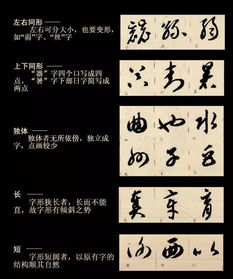 左右同形 ——
左右可分大小，也要变形，
如“弱”字、“丝”字
上下同形 ——
“器”字四个口写成四
点，“暑”字下部日字简写成
两点
独体 ——
独体者无所依傍，独立成
字，点画较少
曲 也 水
州 子 
长 ——
字形狭长者，长而不能
直，故字形有倾斜之势
真 年 有
短 ——
字形短阔者，以原有字的
结构顺其自然
西 以